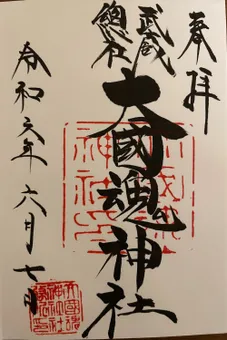 奉拝
武蔵
總社
大國魂神社
令和六年六月七日